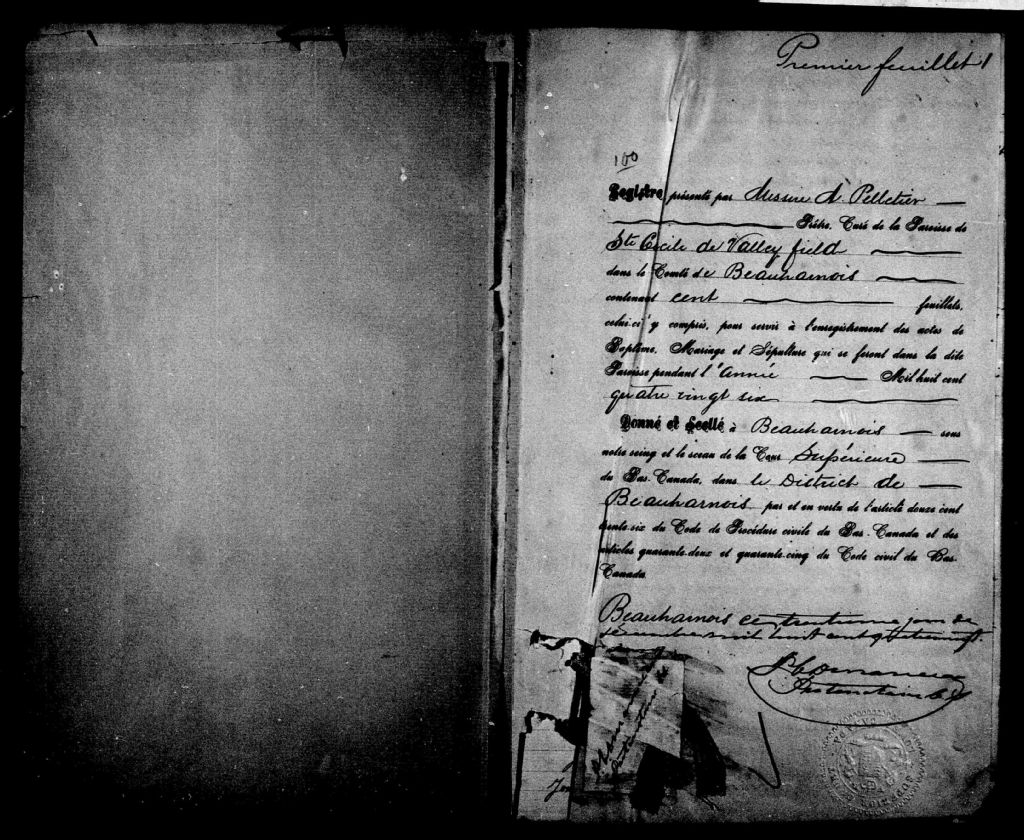 Premier feuillet 1
100
Registre présenté par Messire A. Pelletier
Prêtre, Curé de la Paroisse de
Ste Cécile de Valley field
dans le Comté de Beauharnois
contenant cent feuillets,
celui-ci y compris, pour servir à l'enregistrement des actes de
Baptême, Mariage et Sépulture qui se feront dans la dite
Paroisse pendant l'Année Mil huit cent
quatre vingt six
Donné et Scellé à Beauharnois sous
notre seing et le sceau de la Cour Supérieure
du Bas-Canada, dans le District de
Beauharnois par et en vertu de l'article douze cent
trente-six du Code de Procédure civile du Bas-Canada et des
articles quarante-deux et quarante-cinq du Code civil du Bas-
Canada
Beauharnois ce trentieme jour de
décembre mil huit cent